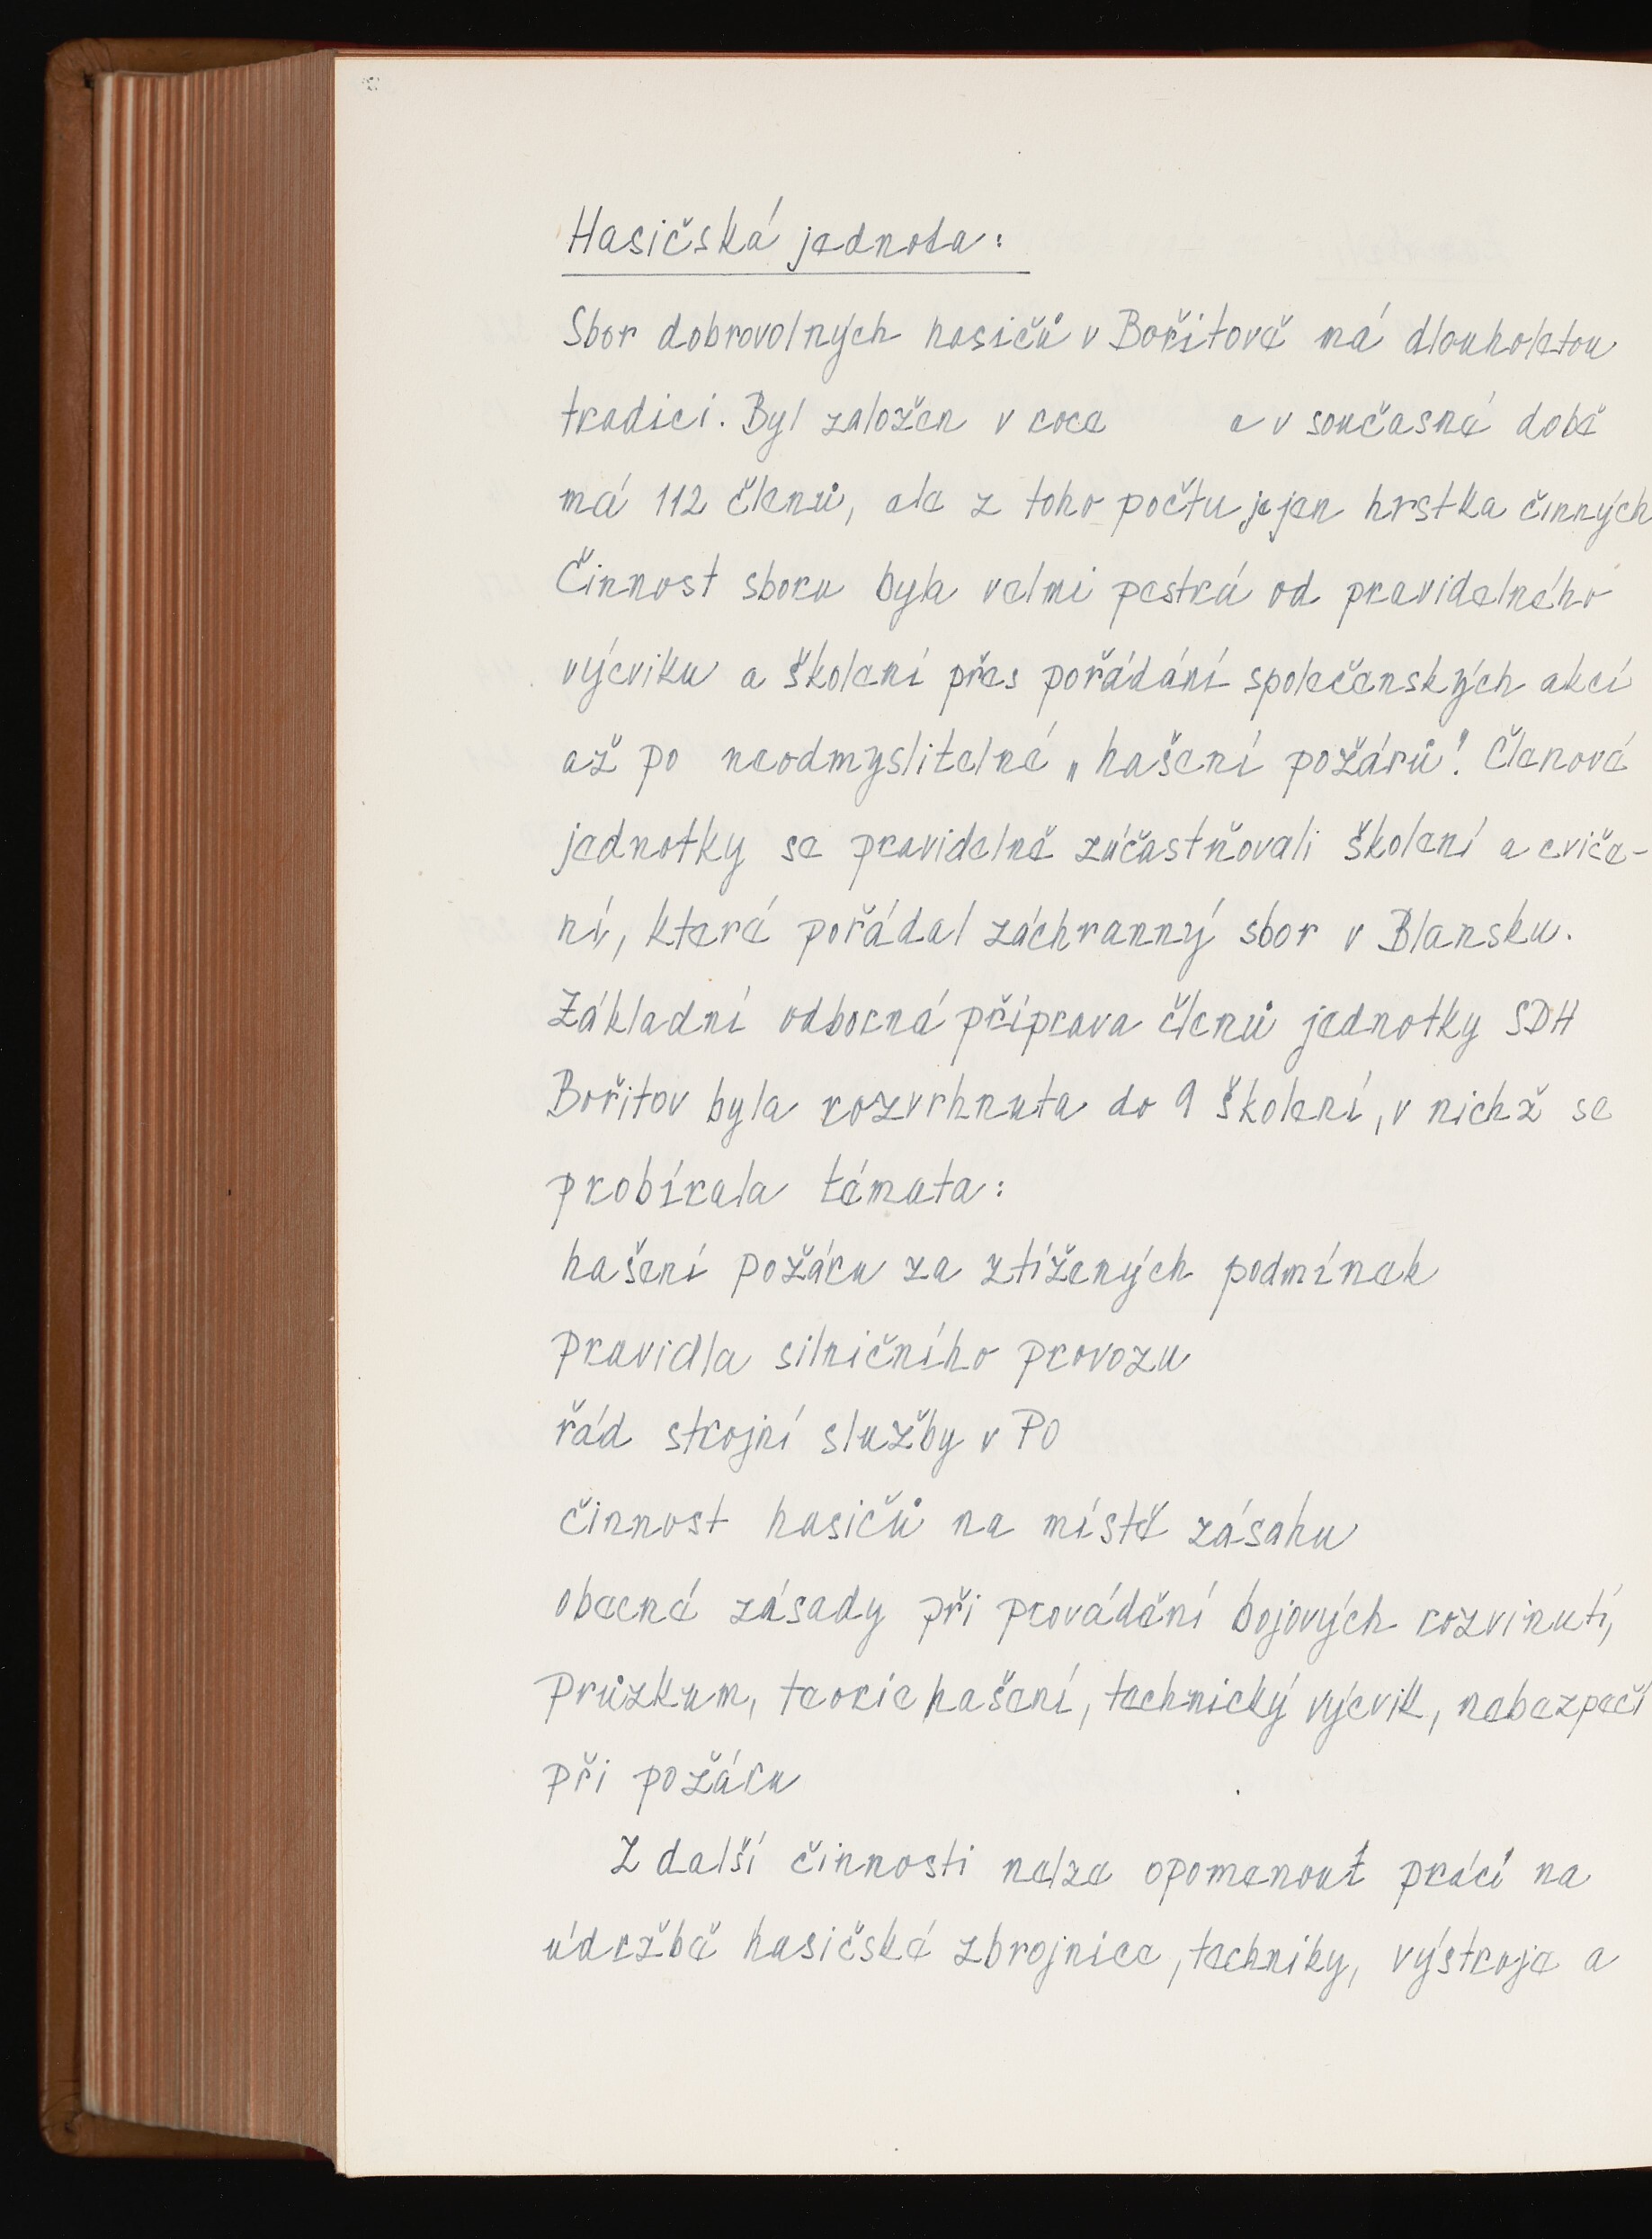 Hasičská jednota:
Sbor dobrovolných hasičů v Bořitově má dlouholetou
tradici. Byl založen v roce a v současné době
má 112 členů, ale z toho počtu je jen hrstka činných
Činnost sboru byla velmi pestrá od pravidelného
výcviku a školení přes pořádání společenských akcí
až po neodmyslitelné „hašení požárů". Členové
jednotky se pravidelně zúčastňovali školení a cviče-
ní, které pořádal záchranný sbor v Blansku.
Základní odborná příprava členů jednotky SDH
Bořitov byla rozvrhnuta do 9 školení, v nichž se
probírala témata:
hašení požáru za ztížených podmínek
pravidla silničního provozu
řád strojní služby v PO
činnost hasičů na místě zásahu
obecné zásady při provádění bojových rozvinutí,
průzkum, teorie hašení, technický výcvik, nebezpečí
při požáru
Z další činnosti nelze opomenout práci na
údržbě hasičské zbrojnice, techniky, výstroje a